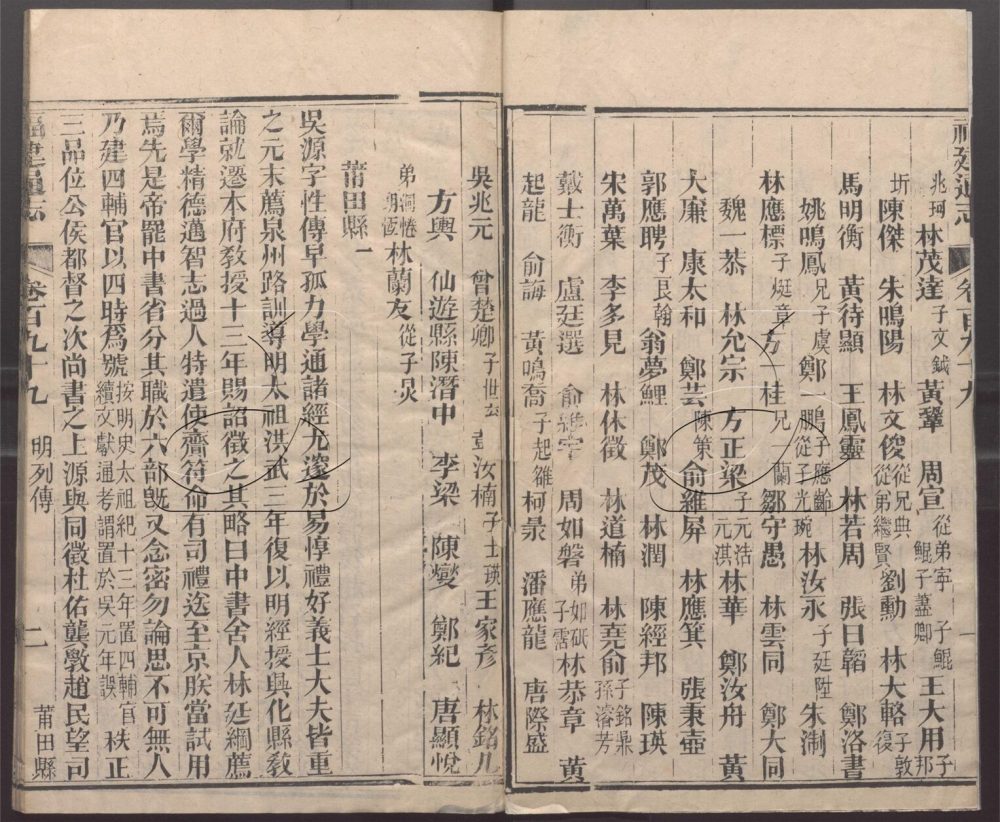 福建通志 卷百九十九 一
兆珂 林茂達 子文鉞 黃鞏 周宣 從弟寧 子鯤 鯤子蓋卿 王大用 子邦
圻 陳傑 朱鳴陽 林文俊 從兄典 從弟繼賢 劉勳 林大輅 子敦復
馬明衡 黃待顯 王鳳靈 林若周 張曰韜 鄭洛書
姚鳴鳳 兄子虞 鄭一鵬 子應齡 從子光琬 林汝永 子廷陞 朱淛
林應標 子烶章 方一桂 兄一蘭 鄒守愚 林雲同 鄭大同
魏一恭 林允宗 方正梁 子元浩 元淇 林華 鄭汝舟 黃
大廉 康太和 鄭芸 陳策 俞維屏 林應箕 張秉壺
郭應聘 子良翰 翁夢鯉 鄭茂 林潤 陳經邦 陳瑛
宋萬葉 李多見 林休徵 林道楠 林堯俞 子銘鼎 孫濬芳
戴士衡 盧廷選 俞維宇 周如磐 弟如砥 子霑 林恭章 黃
起龍 俞誨 黃鳴喬 子起雒 柯㬌 潘應龍 唐際盛
吳兆元 曾楚卿 子世 彭汝楠 子士瑛 王家彥 林銘几
方輿 仙遊縣陳濳中 李梁 陳燮 鄭紀 唐顯悅
弟 林蘭友 從子炅
莆田縣一
吳源字性傳早孤力學通諸經尤邃於易惇禮好義士大夫皆重
之元末薦泉州路訓導明太祖洪武三年復以明經授興化縣敎
諭就遷本府敎授十三年賜詔徵之其略曰中書舍人林廷綱薦
爾學精德邁智志過人特遣使齎符命有司禮送至京朕當試用
焉先是帝罷中書省分其職於六部旣又念密勿論思不可無人
乃建四輔官以四時爲號 按明史太祖紀十三年置四輔官 續文獻通考謂置於吳元年誤 秩正
三品位公侯都督之次尚書之上源與同徵杜佑龔斆趙民望司
福建通志 卷百九十九 明列傳 二 莆田縣